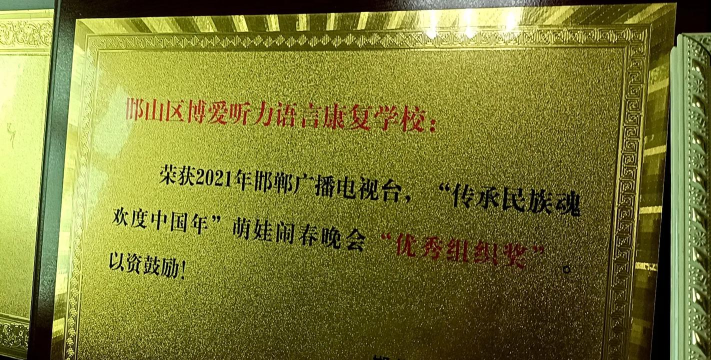 邯山区博爱听力语言康复学校：
荣获2021年邯郸广播电视台，“传承民族魂
欢度中国年”萌娃闹春晚会“优秀组织奖”。
以资鼓励！